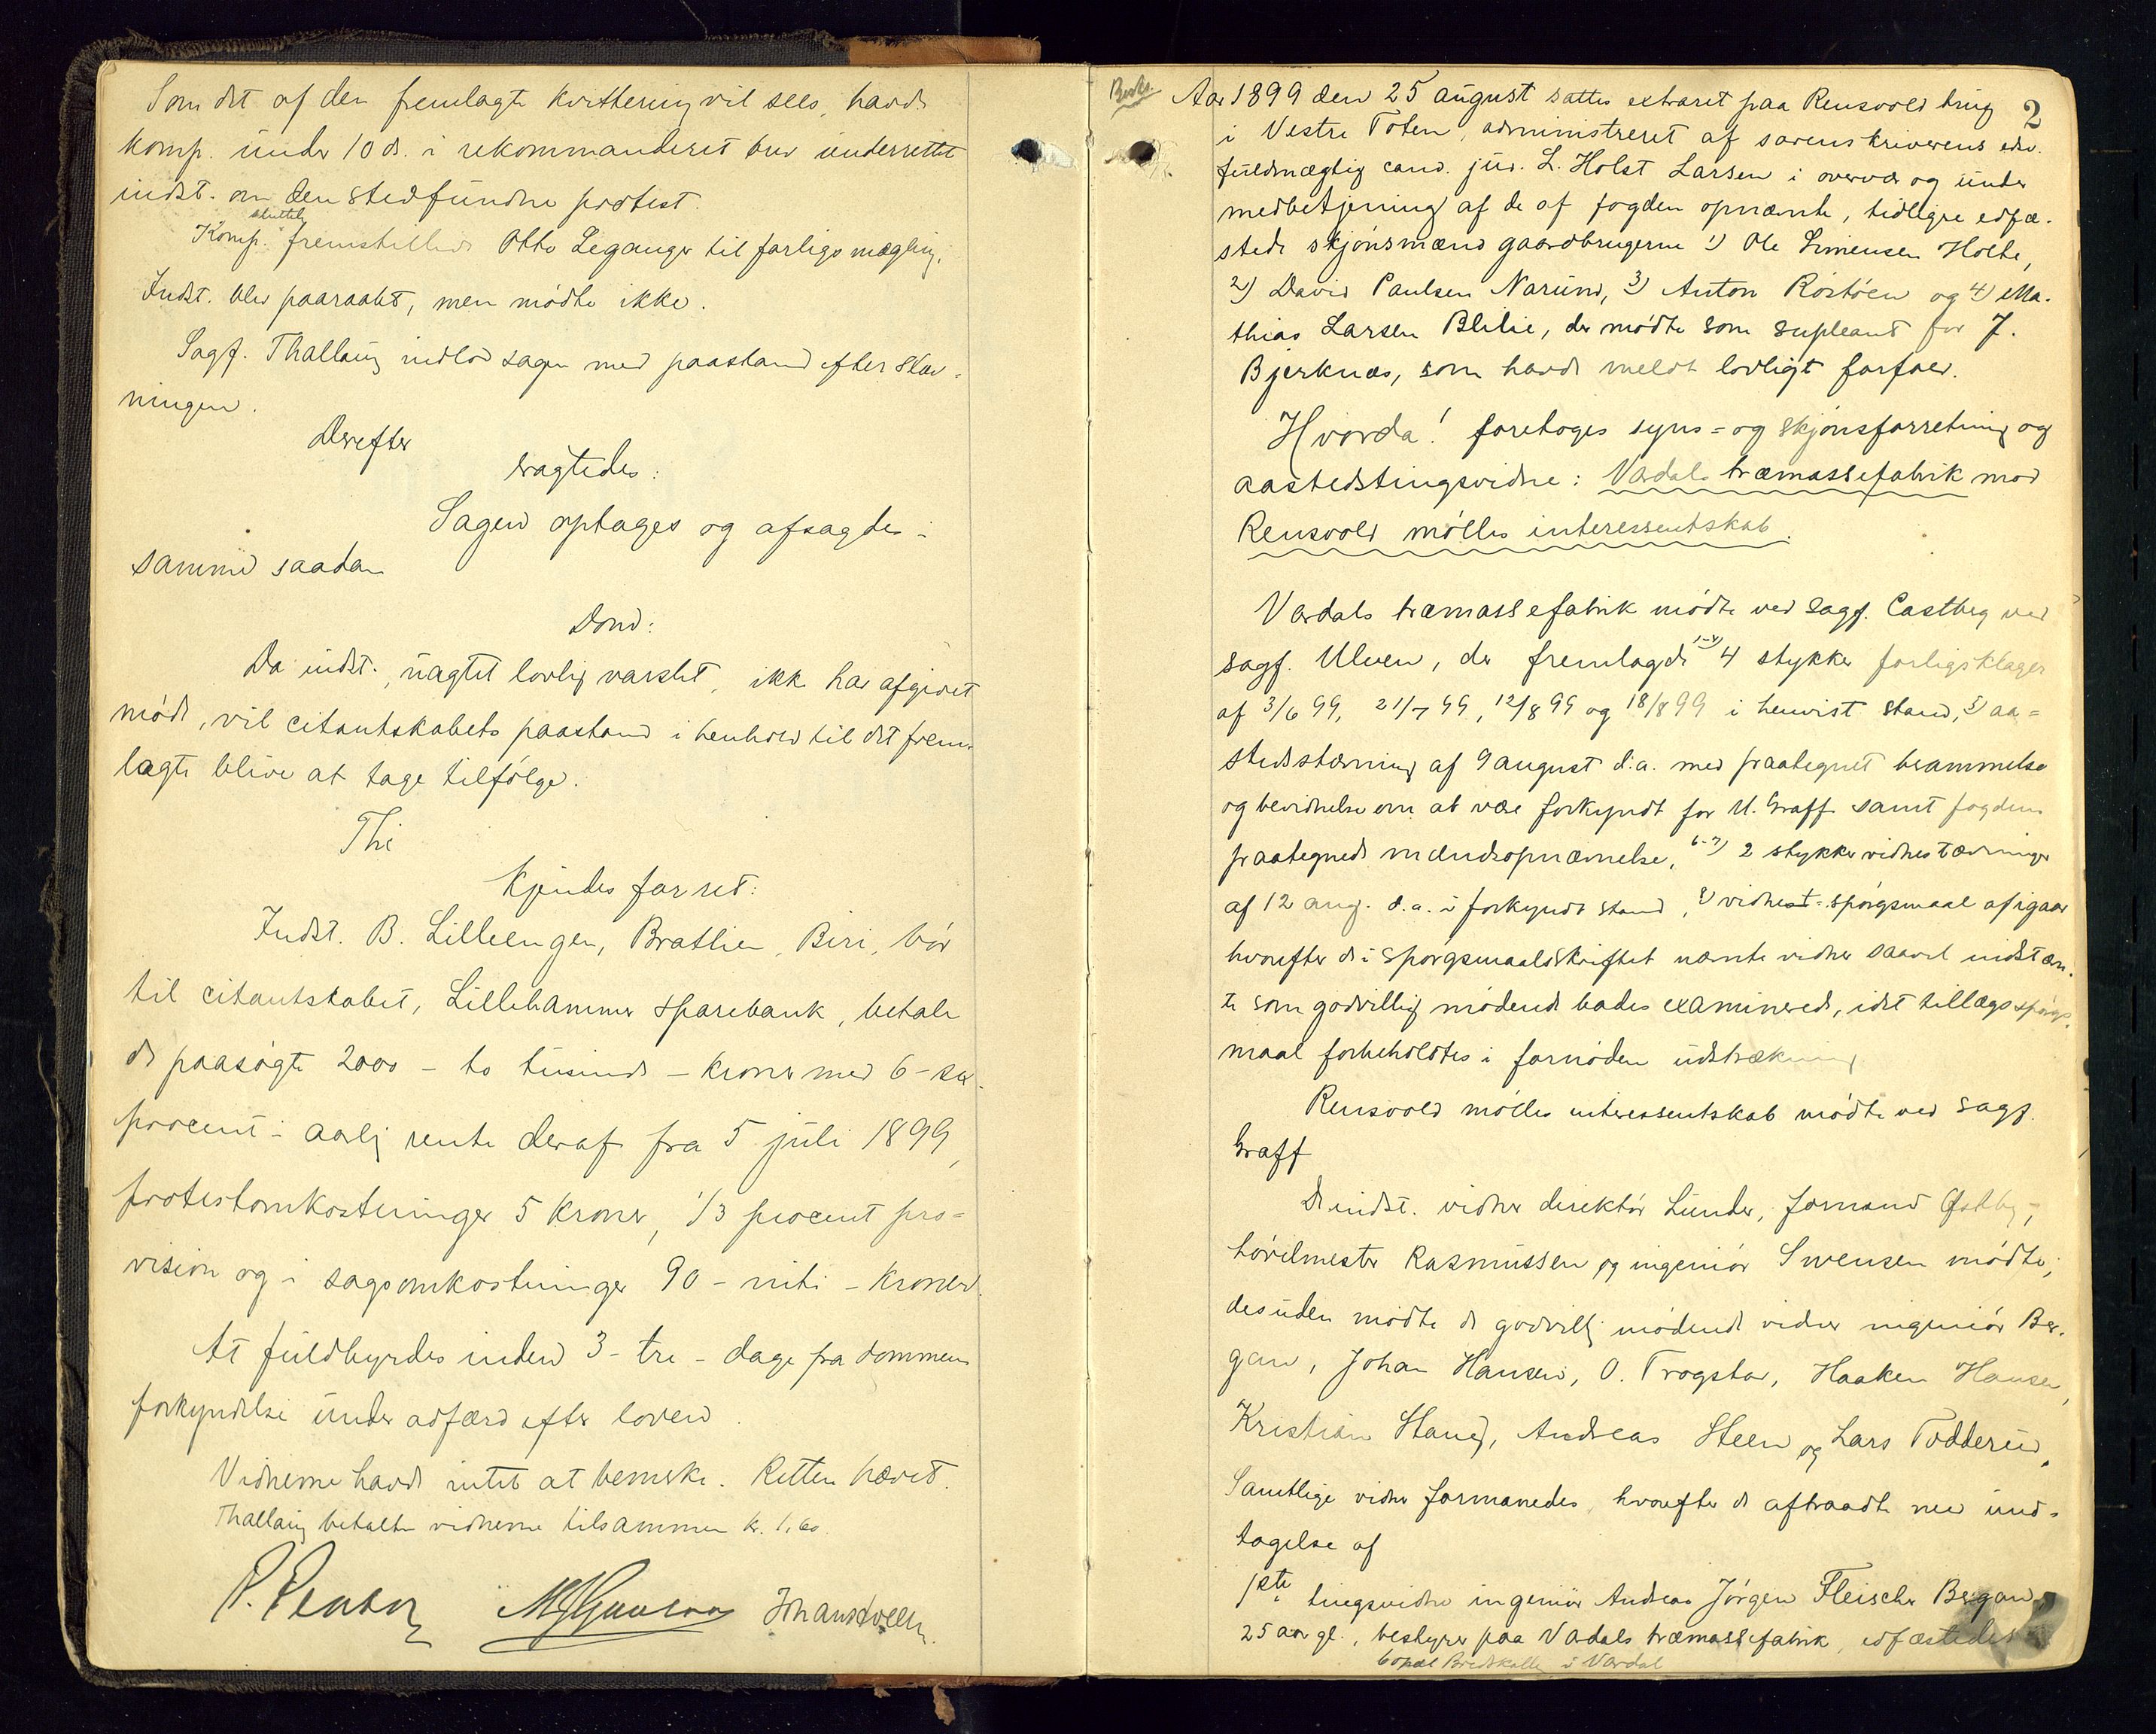 Som det af den fremlagte kvittering vil sees, havde
komp. under 10 ds. i rekommanderet brev underrettet
indst. om den stedfundne protest.
Komp. sluttelig fremstilledes Otto Leganger til forligsmægling.
Indst. blev paaraabt, men mødte ikke.
Sagf. Thallaug indlod sagen med paastand efter stæv-
ningen.
Derefter
eragtedes:
Sagen optages og afsagdes i
samme saadan
Dom:
Da indst., uagtet lovlig varslet, ikke har afgivet
møde, vil citantskabets paastand i henhold til det frem-
lagte blive at tage tilfølge.
Thi
kjendes for ret:
Indst. B. Lilleengen, Bratlien, Biri, bør
til citantskabet, Lillehammer sparebank, betale
de paasøgte 2000 - to tusinde - kroner med 6 - sex
procent i aarlig rente deraf fra 5 juli 1899,
protestomkostninger 5 kroner, 1/3 procent pro-
vision og i sagsomkostninger 90 - niti - kroner.
At fuldbyrdes inden 3 - tre - dage fra dommens
forkyndelse under adfærd efter loven.
Vidnerne havde intet at bemerke. Retten hævet.
Thallaug betalte vidnerne tilsammen kr. 1,60.
2
Aar 1899 den 25 august sattes extraret paa Rensvold brug
i Vestre Toten, administreret af sorenskriverens edsv.
fuldmægtig cand. jur. L. Holst Larsen i overvær og under
medbetjening af de af fogden opnævnte, tidligere edfæ-
stede skjønsmænd gaardbrugerne 1) Ole Simensen Holte,
2) David Paulsen Narum, 3) Anton Rostøen og 4) Ma-
thias Larsen Blilie, der mødte som supleant for J.
Bjerknæs, som havde meldt lovligt forfald.
Hvorda! foretoges syns- og skjønsforretning og
aastedstingsvidne: Vardals træmassefabrik mod
Rensvold mølles interessentskab.
Vardals træmassefabrik mødte ved sagf. Castberg ved
sagf. Ulven, der fremlagde 1-4) 4 stykker forligsklager
af 3/6 99, 21/7 99, 12/8 99 og 18/8 99 i henvist stand, 5) aa-
stedsstævning af 9 august d.a. med paategnet berammelse
og bevidnelse om at være forkyndt for U. Graff samt fogdens
paategnede mændsopnævnelse, 6-7) 2 stykker vidnestævninger
af 12 aug. d.a. i forkyndt stand, 8) vidnespørgsmaal af igaar
hvorefter de i spørgsmaalsskriftet nævnte vidner saavel indstævn-
te som godvillig mødende bades examinerede, idet tillægsspørgs-
maal forbeholdtes i fornøden udstrækning.
Rensvold mølles interessentskab mødte ved sagf.
Graff
De indst. vidner direktør Lunder, formand Østby,
høvelmester Rasmussen og ingeniør Svensen mødte;
desuden mødte de godvillig mødende vidner ingeniør Ber-
gan, Johan Hansen, O. Trogstad, Haaken Hansen,
Kristian Haug, Andreas Steen og Lars Todderud.
Samtlige vidner formanedes, hvorefter de aftraadte med und-
tagelse af
1ste tingsvidne ingeniør Andreas Jørgen Fleischer Bergan
25 aar gl., bestyrer paa Vardals træmassefabrik, edfæstedes
bopæl Bredskallen i Vardal